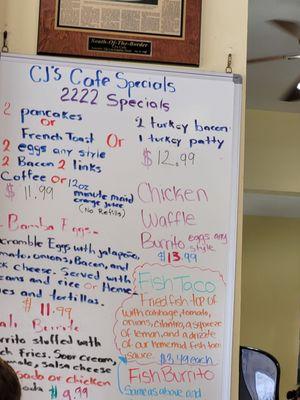 South-Of-The-Border
CJ's Cafe Specials
2222 Specials
2 pancakes
or
French Toast
2 eggs any style
2 Bacon 2 links
Coffee or 12oz
minute maid
orange juice
(No Refills)
$11.99
Or
2 turkey bacon
1 turkey patty
$12.99
Bamba Eggs
cramble Eggs with jalapeño,
mato, onions, Bacon, and
ck cheese. Served with
eans and rice or Home
ies and tortillas.
$11.99
rrito stuffed with
ch Fries, Sour Cream,
salsa cheese
sada or chicken
oda $9.99
Chicken
Waffle
Burrito eggs any
style
$13.99
Fish Taco
Fried fish top of
with cabbage, tomato,
onions, cilantro, a squeeze
of lemon, and a drizzle
of our homemade fish taco
sauce. $3.49 each
Fish Burrito
Same as above and